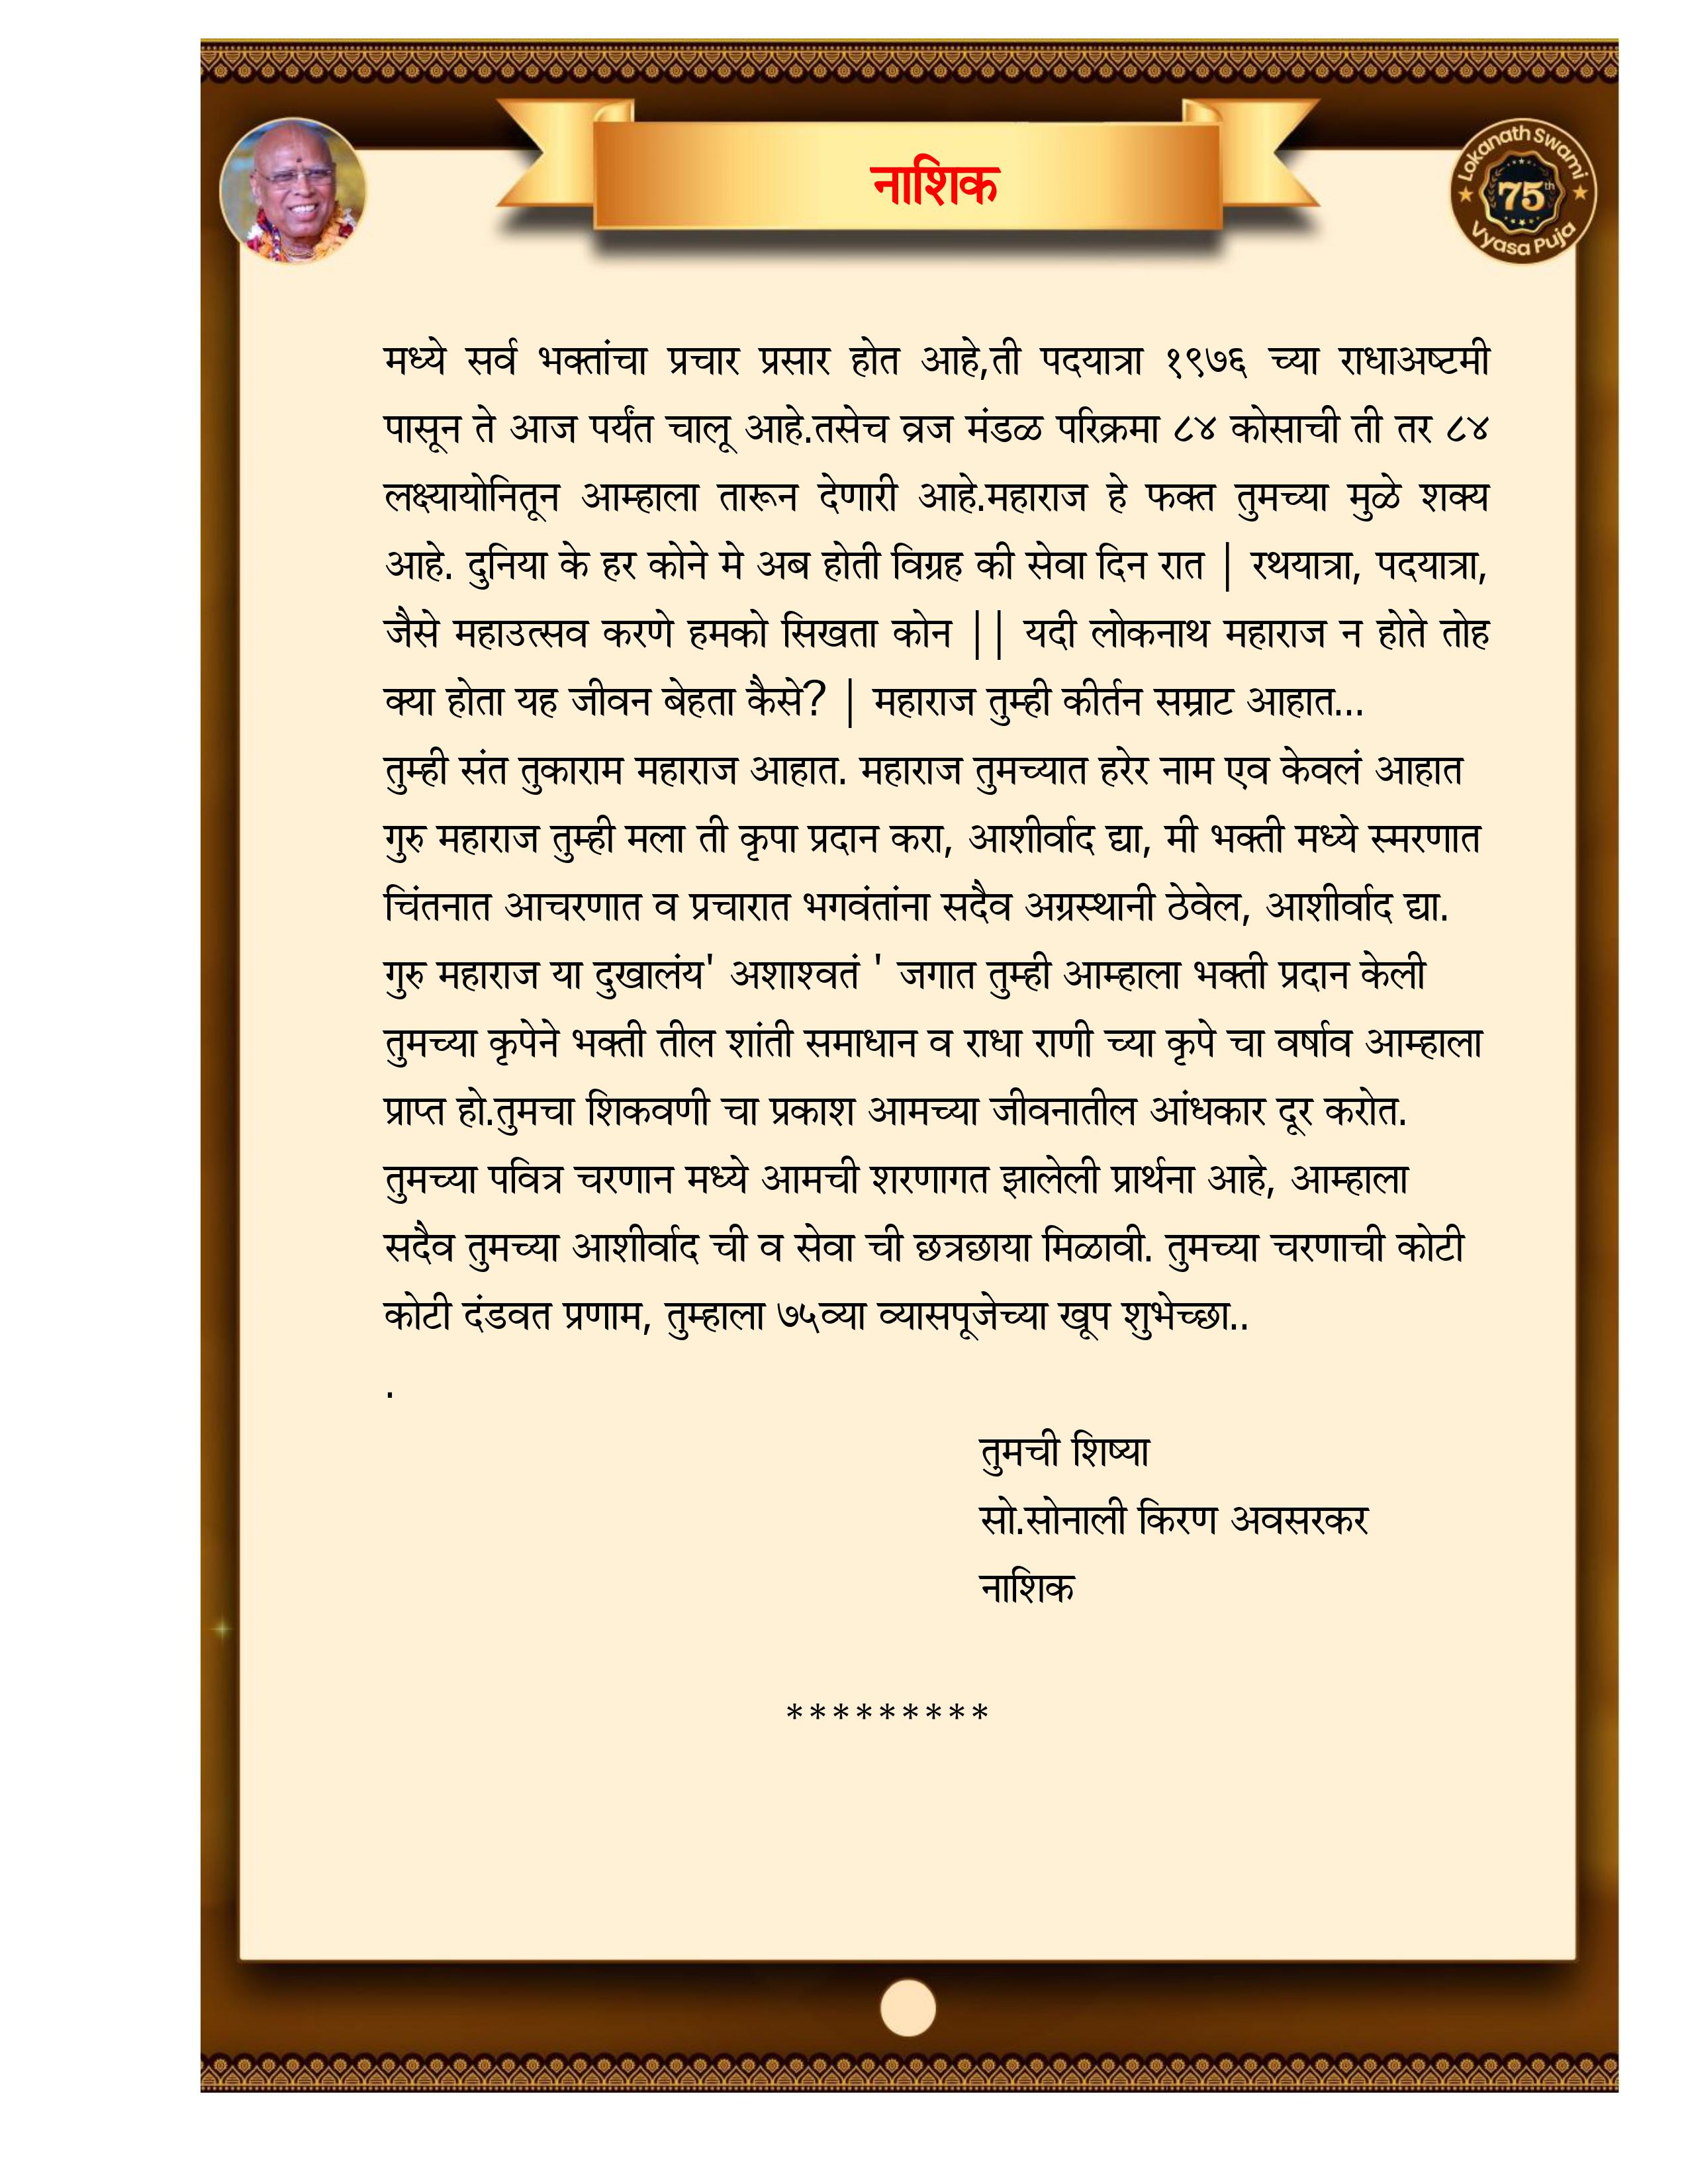 नाशिक
Lokanath Swami
75th
Vyasa Puja
मध्ये सर्व भक्तांचा प्रचार प्रसार होत आहे,ती पदयात्रा १९७६ च्या राधाअष्टमी
पासून ते आज पर्यंत चालू आहे.तसेच व्रज मंडळ परिक्रमा ८४ कोसाची ती तर ८४
लक्ष्यायोनितून आम्हाला तारून देणारी आहे.महाराज हे फक्त तुमच्या मुळे शक्य
आहे. दुनिया के हर कोने मे अब होती विग्रह की सेवा दिन रात | रथयात्रा, पदयात्रा,
जैसे महाउत्सव करणे हमको सिखता कोन || यदी लोकनाथ महाराज न होते तोह
क्या होता यह जीवन बेहता कैसे? | महाराज तुम्ही कीर्तन सम्राट आहात...
तुम्ही संत तुकाराम महाराज आहात. महाराज तुमच्यात हरेर नाम एव केवलं आहात
गुरु महाराज तुम्ही मला ती कृपा प्रदान करा, आशीर्वाद द्या, मी भक्ती मध्ये स्मरणात
चिंतनात आचरणात व प्रचारात भगवंतांना सदैव अग्रस्थानी ठेवेल, आशीर्वाद द्या.
गुरु महाराज या दुखालंय' अशाश्वतं ' जगात तुम्ही आम्हाला भक्ती प्रदान केली
तुमच्या कृपेने भक्ती तील शांती समाधान व राधा राणी च्या कृपे चा वर्षाव आम्हाला
प्राप्त हो.तुमचा शिकवणी चा प्रकाश आमच्या जीवनातील आंधकार दूर करोत.
तुमच्या पवित्र चरणान मध्ये आमची शरणागत झालेली प्रार्थना आहे, आम्हाला
सदैव तुमच्या आशीर्वाद ची व सेवा ची छत्रछाया मिळावी. तुमच्या चरणाची कोटी
कोटी दंडवत प्रणाम, तुम्हाला ७५व्या व्यासपूजेच्या खूप शुभेच्छा..
.
तुमची शिष्या
सो.सोनाली किरण अवसरकर
नाशिक
*********